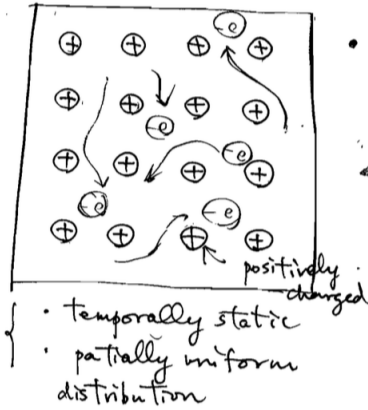 -e
+ + + +
+ + + +
-e
+ + + +
-e
-e -e
+ + + +
positively
charged
· temporally static
· partially uniform
distribution